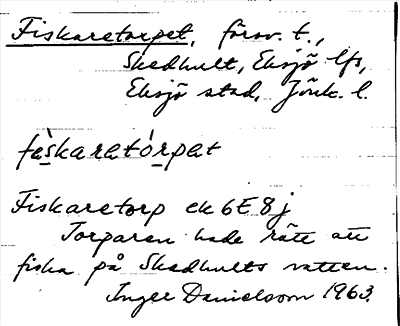 Fiskaretorpet, försv. t.,
Skedhult, Eksjö lfs,
Eksjö stad, Jönk. l.
fìskaretórpet
Fiskaretorp ek 6E 8j
Torparen hade rätt att
fiska på Skedhults vatten.
Inger Danielsson 1963.